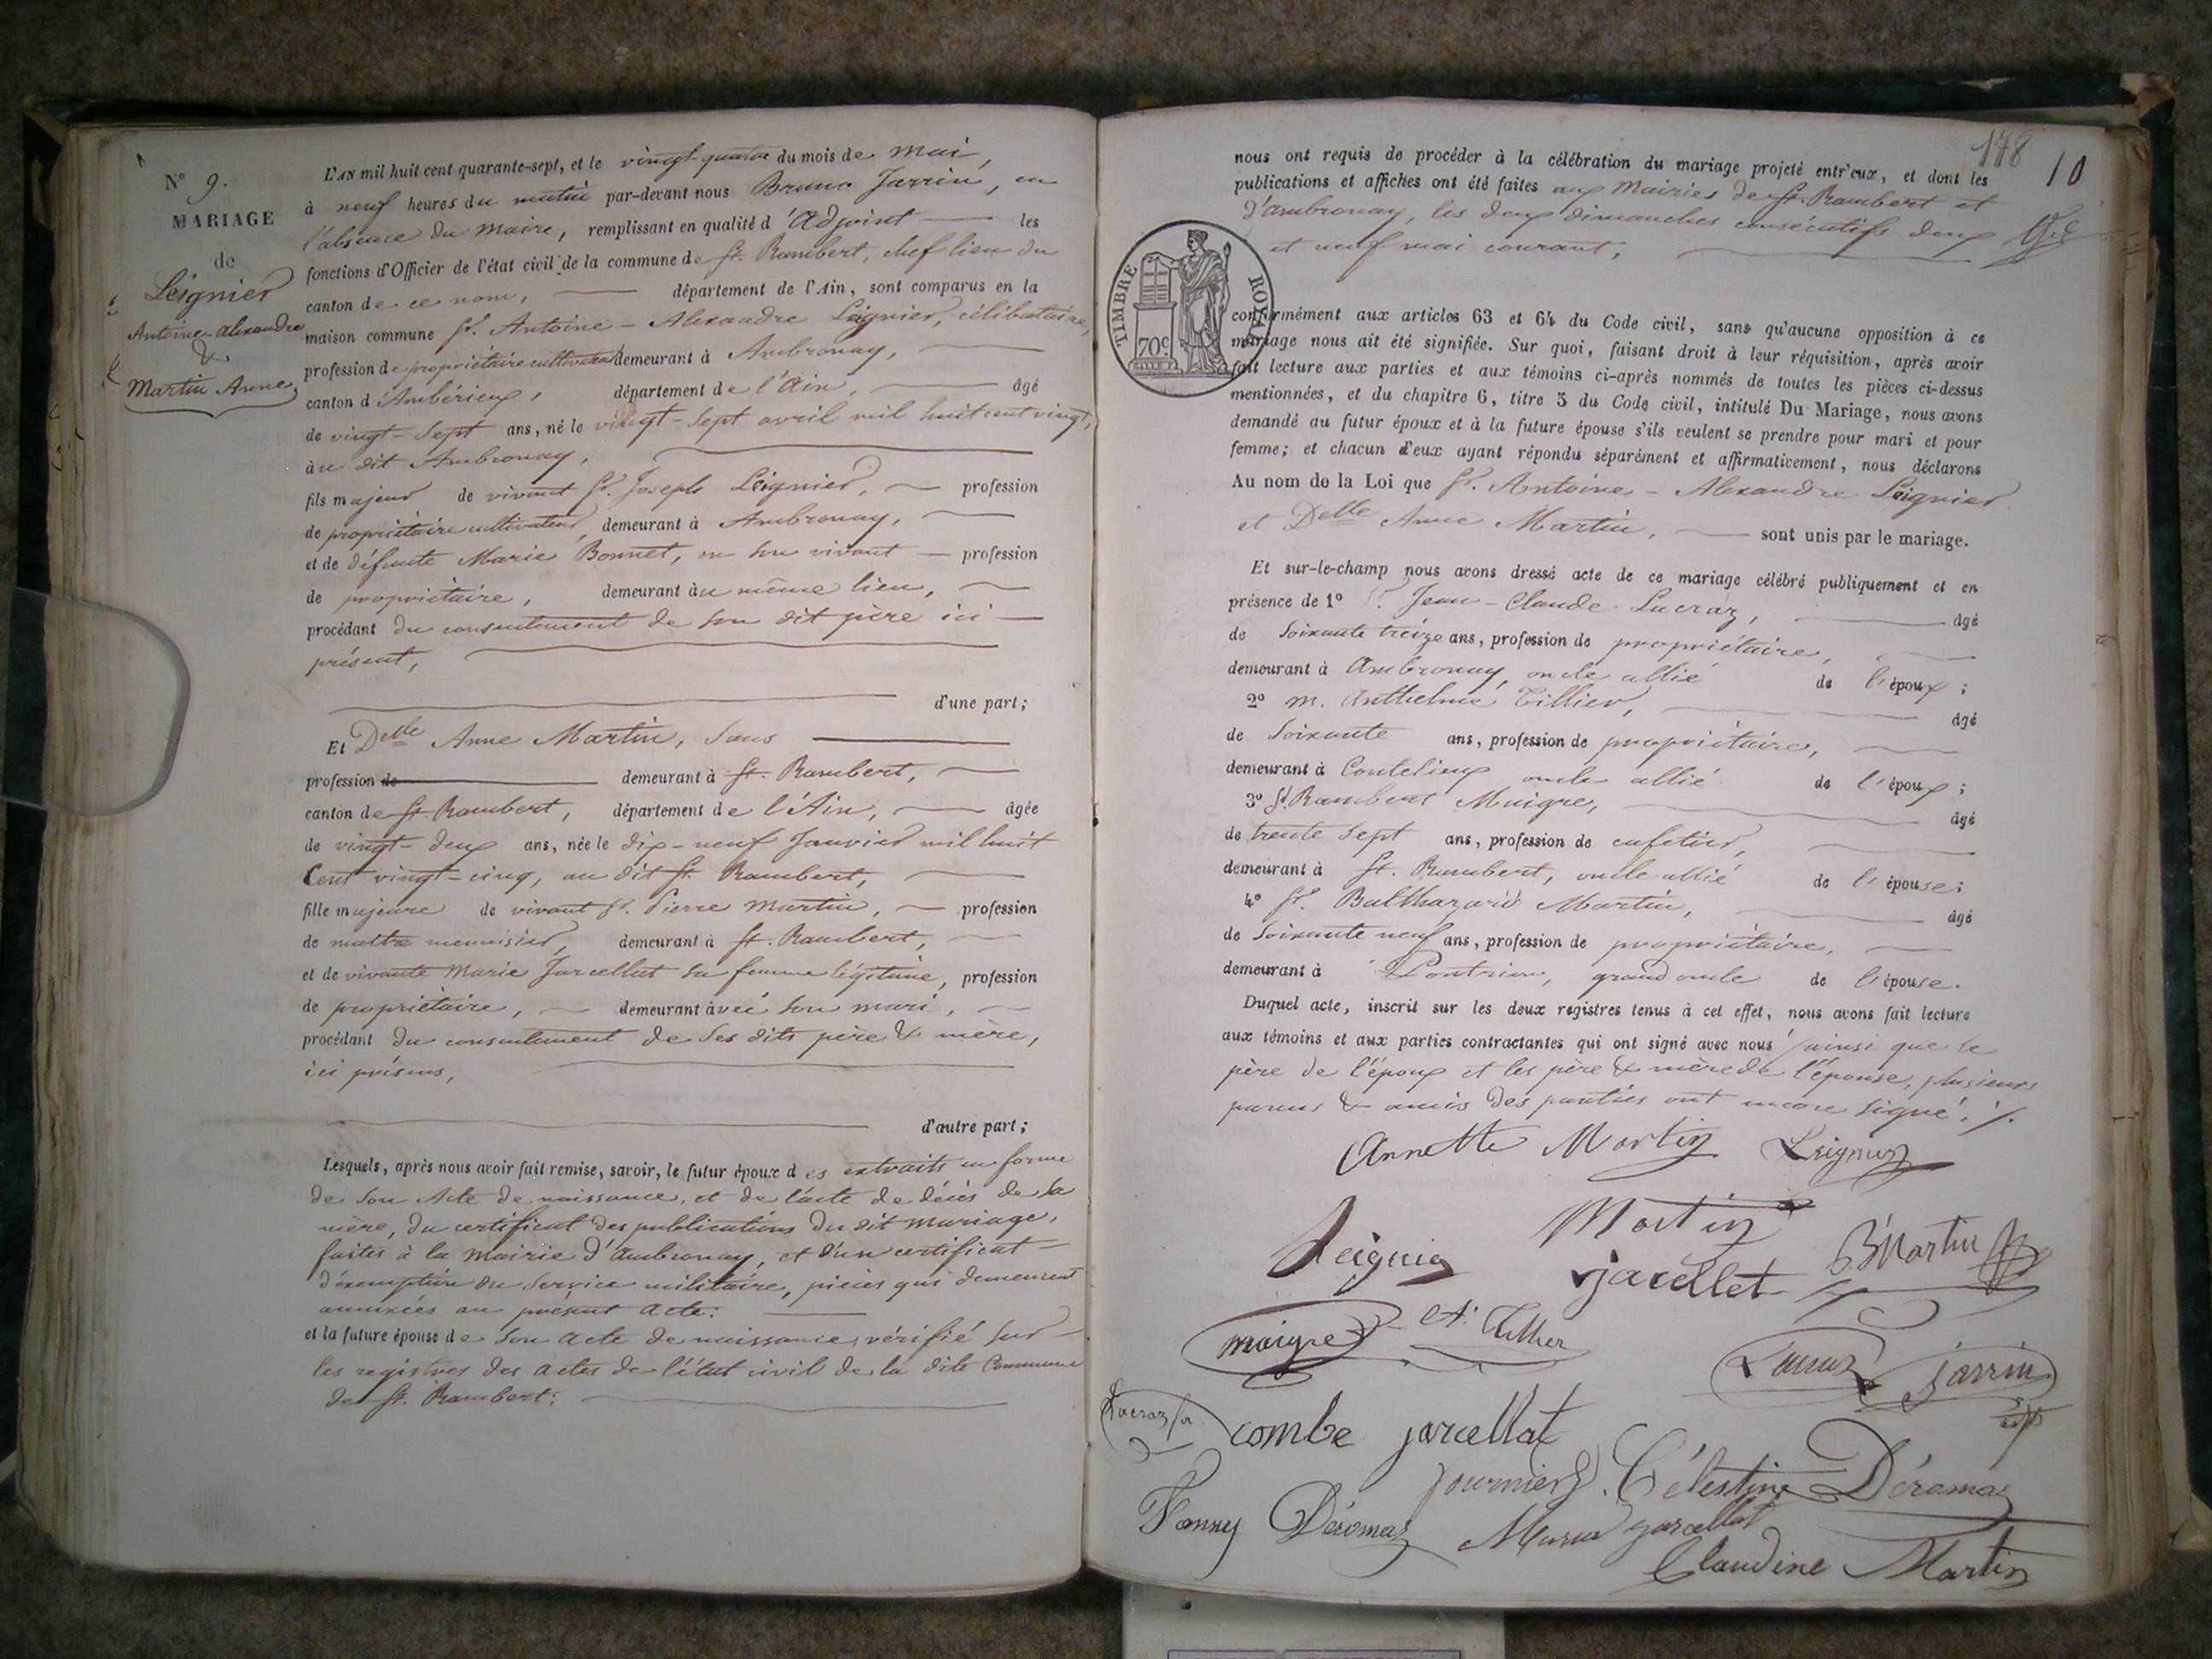 N° 9.
MARIAGE
de
Leignier
Antoine-Alexandre
&
Martin Anne
L'AN mil huit cent quarante-sept, et le vingt-quatre du mois de mai,
à neuf heures du matin par-devant nous Bruno Jarrin, en
l'absence du maire, remplissant en qualité d'Adjoint les
fonctions d'Officier de l'état civil de la commune de St. Rambert, chef lieu du
canton de ce nom, département de l'Ain, sont comparus en la
maison commune Sr. Antoine-Alexandre Leignier, célibataire,
profession de propriétaire cultivateur demeurant à Ambronay,
canton d'Ambérieux, département de l'Ain, âgé
de vingt-sept ans, né le vingt-sept avril mil huit cent vingt,
au dit Ambronay,
fils majeur de vivant Sr. Joseph Leignier, profession
de propriétaire cultivateur, demeurant à Ambronay,
et de défunte Marie Bonnet, en son vivant profession
de propriétaire, demeurant au même lieu,
procédant du consentement de son dit père ici
présent,
d'une part;
Et Delle Anne Martin, sans
profession de demeurant à St. Rambert,
canton de St. Rambert, département de l'Ain, âgée
de vingt-deux ans, née le dix-neuf Janvier mil huit
Cent vingt-cinq, au dit St. Rambert,
fille majeure de vivant Sr. Pierre Martin, profession
de maître menuisier, demeurant à St. Rambert,
et de vivante Marie Jarcellat sa femme légitime, profession
de propriétaire, demeurant avec son mari,
procédant du consentement de ses dits père & mère,
ici présens,
d'autre part;
Lesquels, après nous avoir fait remise, savoir, le futur époux des extraits en forme
de son Acte de naissance, et de l'acte de décès de sa
mère, du certificat des publications du dit mariage,
faites à la mairie d'Ambronay, et d'un certificat
d'exemption du service militaire, pièces qui demeurent
annexées au présent acte:
et la future épouse de son acte de naissance, vérifié sur
les registres des actes de l'état civil de la dite Commune
de St. Rambert:
178
10
nous ont requis de procéder à la célébration du mariage projeté entr'eux, et dont les
publications et affiches ont été faites aux Mairies de St. Rambert et
d'Ambronay, les deux dimanches consécutifs deux
et neuf mai courant,
TIMBRE ROYAL
70c
conformément aux articles 63 et 64 du Code civil, sans qu'aucune opposition à ce
mariage nous ait été signifiée. Sur quoi, faisant droit à leur réquisition, après avoir
fait lecture aux parties et aux témoins ci-après nommés de toutes les pièces ci-dessus
mentionnées, et du chapitre 6, titre 5 du Code civil, intitulé Du Mariage, nous avons
demandé au futur époux et à la future épouse s'ils veulent se prendre pour mari et pour
femme; et chacun d'eux ayant répondu séparément et affirmativement, nous déclarons
Au nom de la Loi que Sr. Antoine-Alexandre Leignier
et Delle Anne Martin, sont unis par le mariage.
Et sur-le-champ nous avons dressé acte de ce mariage célébré publiquement et en
présence de 1° Sr. Jean-Claude Lacraz, âgé
de soixante treize ans, profession de propriétaire,
demeurant à Ambronay, oncle allié de l'époux;
2° M. Anthelme Tillier, âgé
de soixante ans, profession de propriétaire,
demeurant à oncle allié de l'époux;
3° Sr. Rambert Maigre, âgé
de trente sept ans, profession de cafetier,
demeurant à St. Rambert, oncle allié de l'épouse;
4° Sr. Balthazard Martin, âgé
de soixante neuf ans, profession de propriétaire,
demeurant à grand oncle de l'épouse.
Duquel acte, inscrit sur les deux registres tenus à cet effet, nous avons fait lecture
aux témoins et aux parties contractantes qui ont signé avec nous ainsi que le
père de l'époux et les père & mère de l'épouse, plusieurs
parens & amis des parties ont encore signé ./.
Annette Martin Leignier
Leignier Martin
jarcellet B Martin
maigre A. Tillier
Lacraz jarrin
Lacraz combe jarcellat
fournier Célestine Déromas
Fanny Déromas Maria jarcellat
Claudine Martin